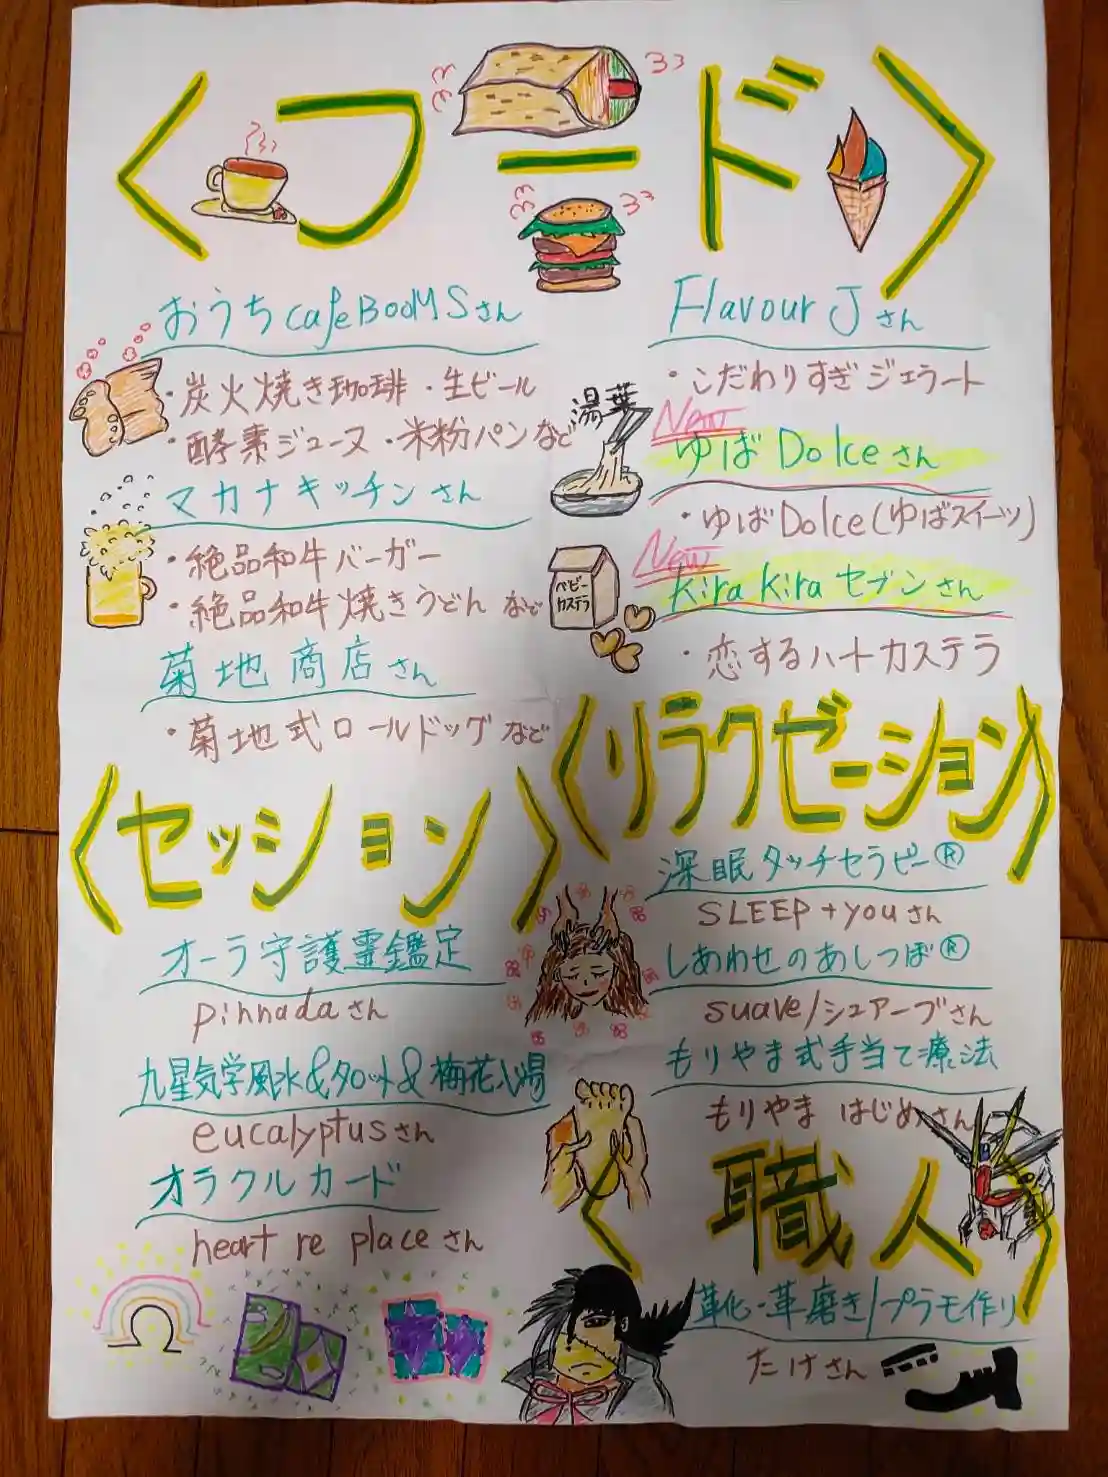 〈フード〉
おうちcafeBooMSさん
・炭火焼き珈琲・生ビール
・酵素ジュース・米粉パンなど
マカナキッチンさん
・絶品和牛バーガー
・絶品和牛焼きうどんなど
菊地商店さん
・菊地式ロールドッグなど
Flavour Jさん
・こだわりすぎジェラート
湯葉
New
ゆばDolceさん
・ゆばDolce(ゆばスイーツ)
New
ベビーカステラ
Kira Kiraセブンさん
・恋するハートカステラ
〈セッション〉
オーラ守護霊鑑定
pinnadaさん
九星気学風水&タロット&梅花心易
eucalyptusさん
オラクルカード
heart re placeさん
〈リラクゼーション〉
深眠タッチセラピー®
SLEEP+youさん
しあわせのあしつぼ®
suave/シュアーブさん
もりやま式手当て療法
もりやま はじめさん
〈職人〉
革靴・革磨き/プラモ作り
たけさん